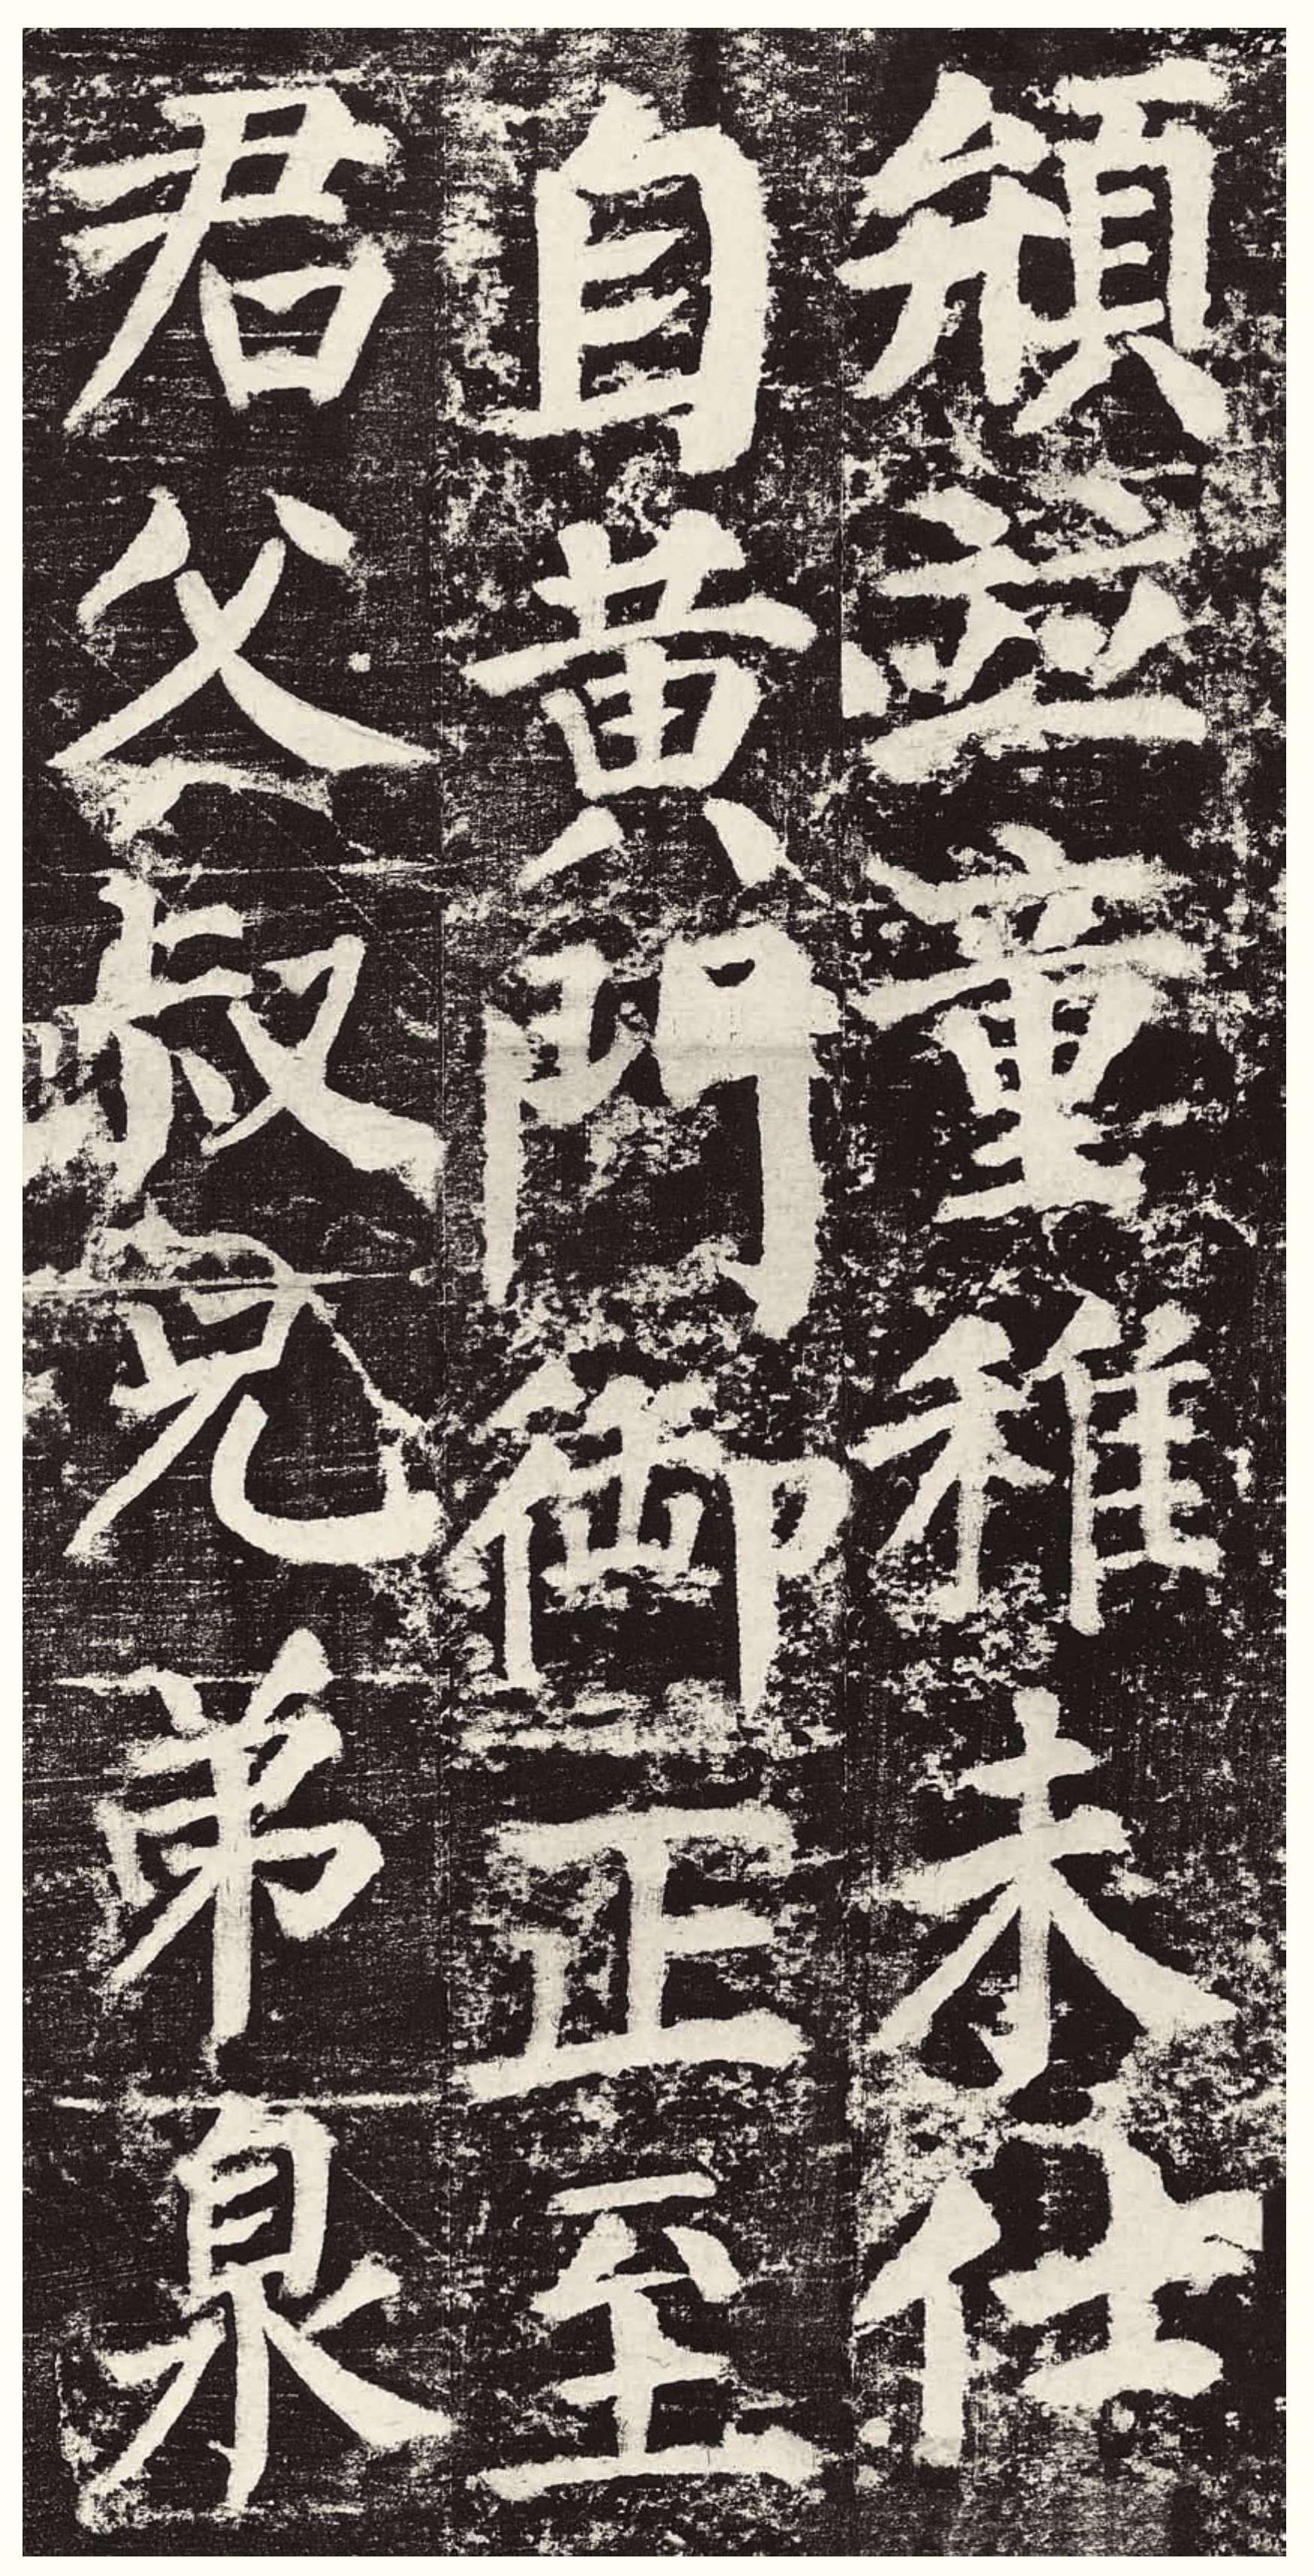 並童稚未仕
自黃門御正至
君父叔兄弟泉